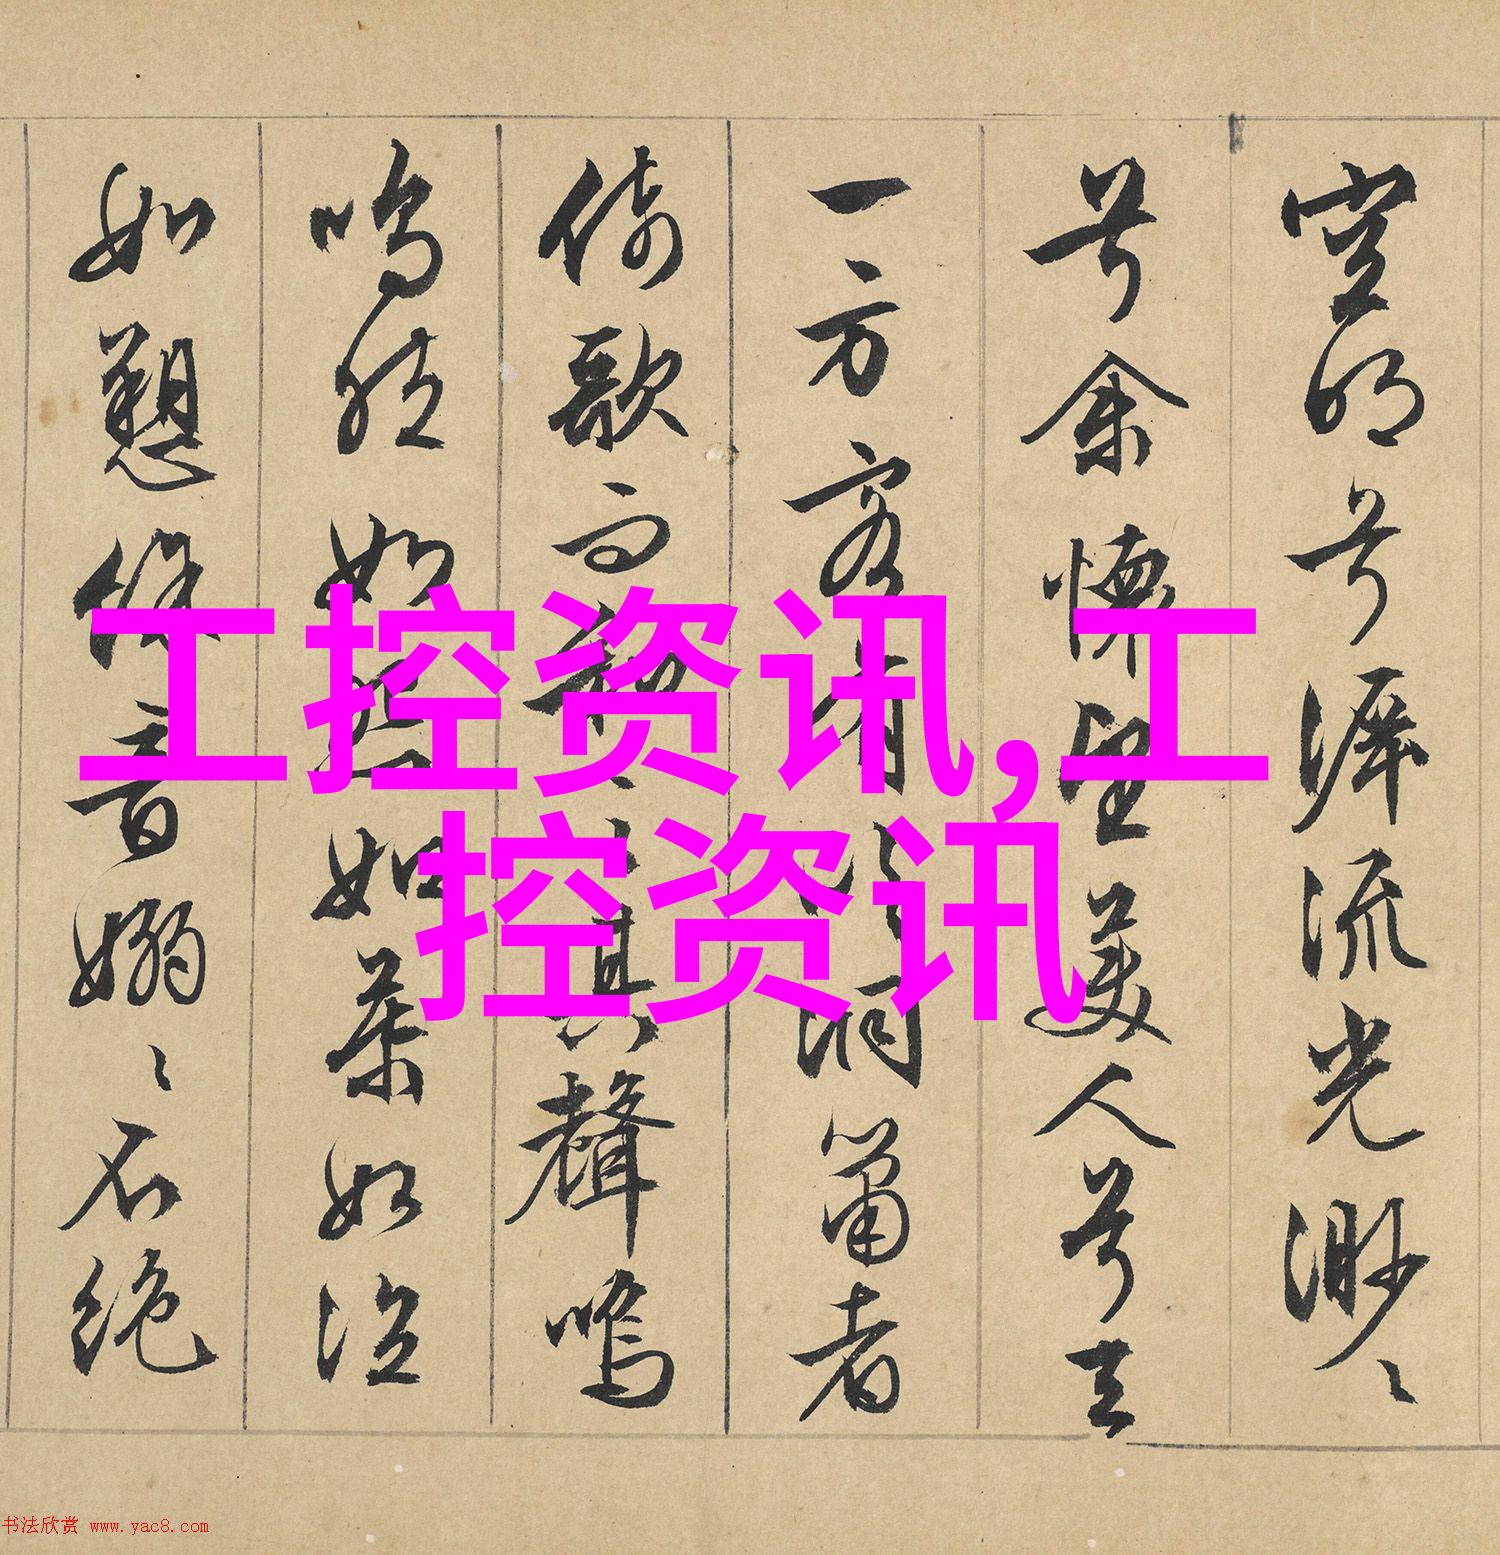 空明兮泝流光渺々
兮余懷望美人兮天
一方客有吹洞簫者
倚歌而和之其聲嗚
嗚然如怨如慕如泣
如愬餘音嫋々不絕
工控资讯,工
控资讯
书法欣赏 www.yac8.com